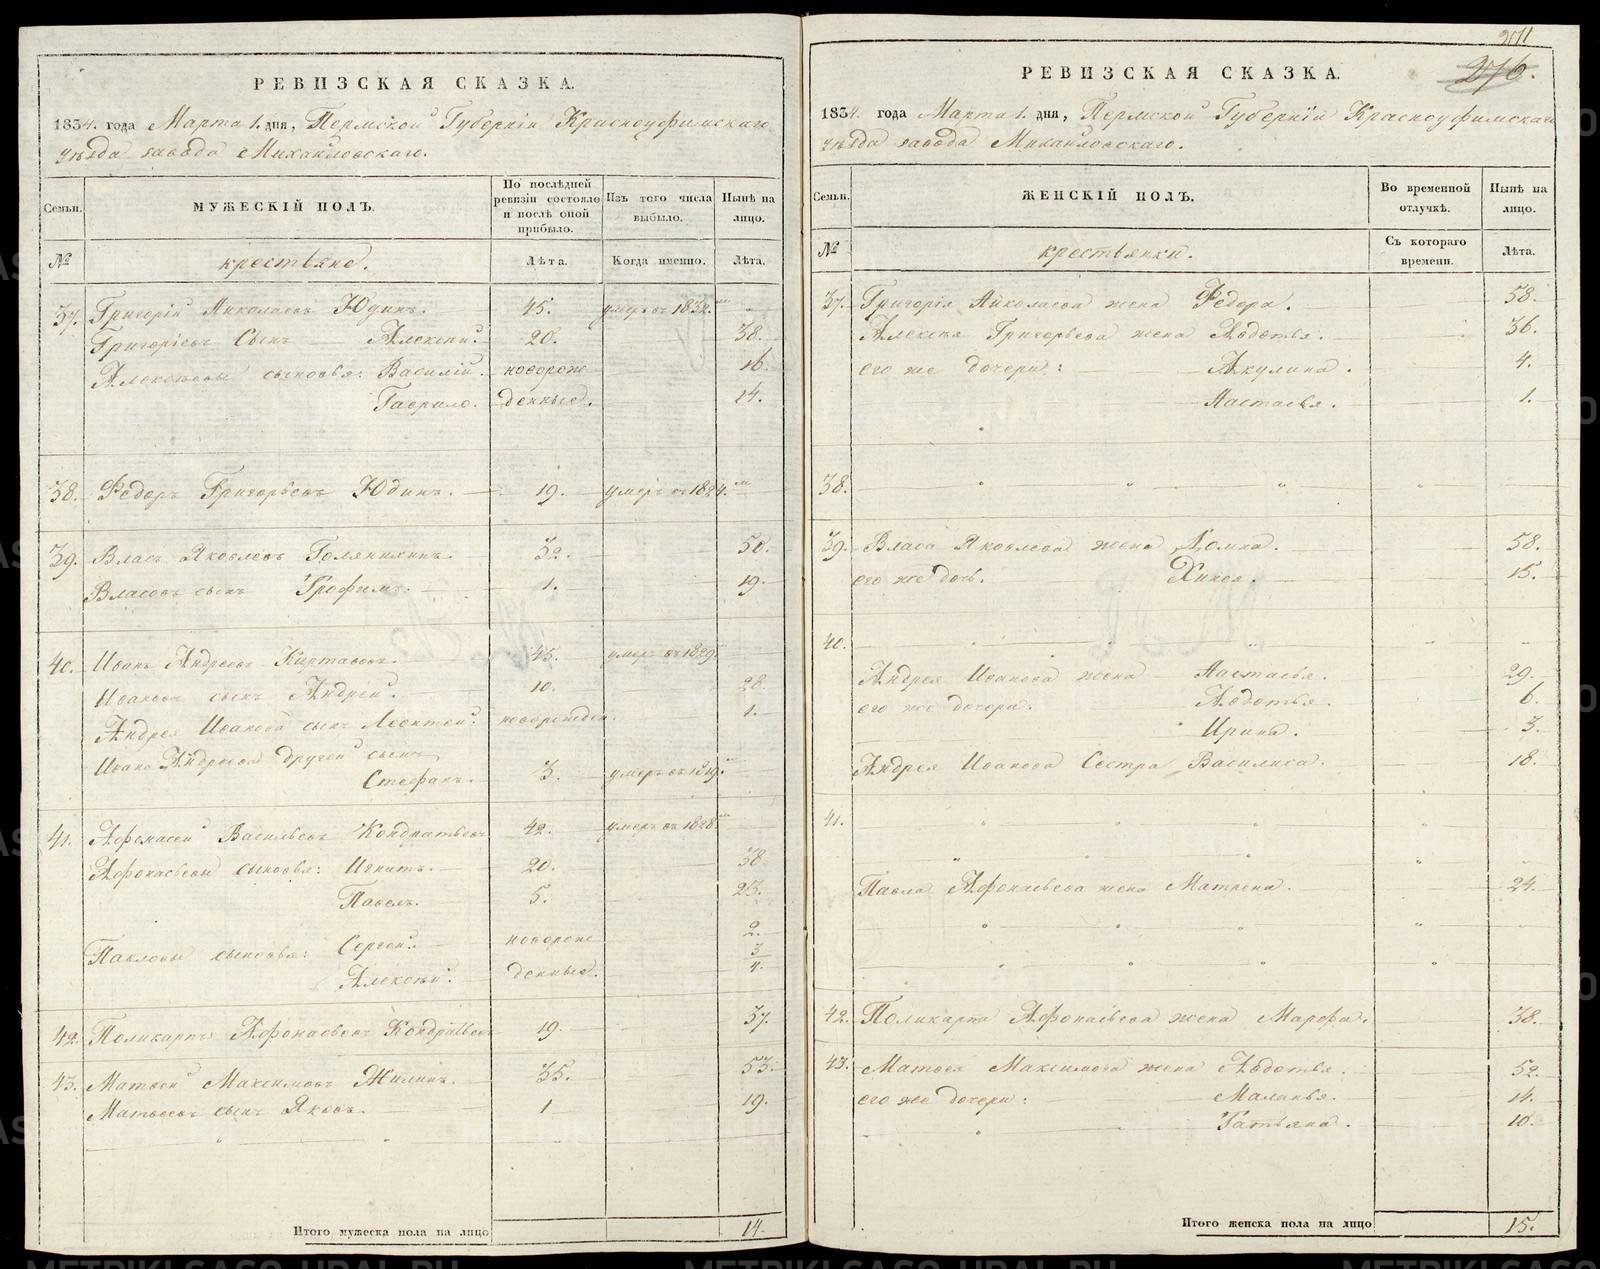 РЕВИЗСКАЯ СКАЗКА.
1834. года Марта 1. дня, Пермской Губерніи Красноуфимскаго
уѣзда завода Михайловскаго.
Семьи.
МУЖЕСКІЙ ПОЛЪ.
По послѣдней ревизіи состояло и послѣ оной прибыло.
Изъ того числа выбыло.
Нынѣ на лицо.
№
крестьяне.
Лѣта.
Когда именно.
Лѣта.
37. Григорій Николаевъ Юдинъ. 45. умеръ въ 1832.
Григорьевъ Сынъ Алексѣй. 20. 38.
Алексѣевы сыновья: Василій. новорож 16.
Гаврило. денные. 14.
38. Федоръ Григорьевъ Юдинъ. 19. умеръ въ 1824.
39. Власъ Яковлевъ 32. 50.
Власовъ сынъ Трофимъ. 1. 19.
40. Иванъ Андреевъ 45. умеръ въ 1829.
Ивановъ сынъ Андрей. 10. 28.
Андрея Иванова сынъ Леонтей. новорожден. 1.
Ивана Андреева другой сынъ
Стефанъ. 3. умеръ въ 1819.
41. Афонасей Васильевъ Кондратьевъ 42. умеръ въ 1828.
Афонасьевы сыновья: Игнатъ. 20. 38.
Павелъ. 5. 23.
Павловы сыновья: Сергей. новорож 2.
Алексѣй. денные. 3/4.
42. Поликарпъ Афонасьевъ Кондратьевъ 19. 37.
43. Матвей Максимовъ Жилинъ. 35. 53.
Матвеевъ сынъ Яковъ. 1 19.
Итого мужеска пола на лицо 14.
271
276.
РЕВИЗСКАЯ СКАЗКА.
1834. года Марта 1. дня, Пермской Губерніи Красноуфимскаго
уѣзда завода Михайловскаго.
Семьи.
ЖЕНСКІЙ ПОЛЪ.
Во временной отлучкѣ.
Нынѣ на лицо.
№
крестьянки.
Съ котораго времени.
Лѣта.
37. Григорія Николаева жена Федора. 58.
Алексѣя Григорьева жена Авдотья. 36.
его же дочери: Акулина. 4.
Настасья. 1.
38.
39. Власа Яковлева жена Домна. 58.
его же дочь. 15.
40.
Андрея Иванова жена Настасья. 29.
его же дочери: Авдотья. 6.
Ирина. 3.
Андрея Иванова Сестра Василиса. 18.
41.
Павла Афонасьева жена Матрена. 24.
42. Поликарпа Афонасьева жена Марфа. 38.
43. Матвея Максимова жена Авдотья. 52.
его же дочери: Маланья. 14.
Татьяна. 10.
Итого женска пола на лицо 15.